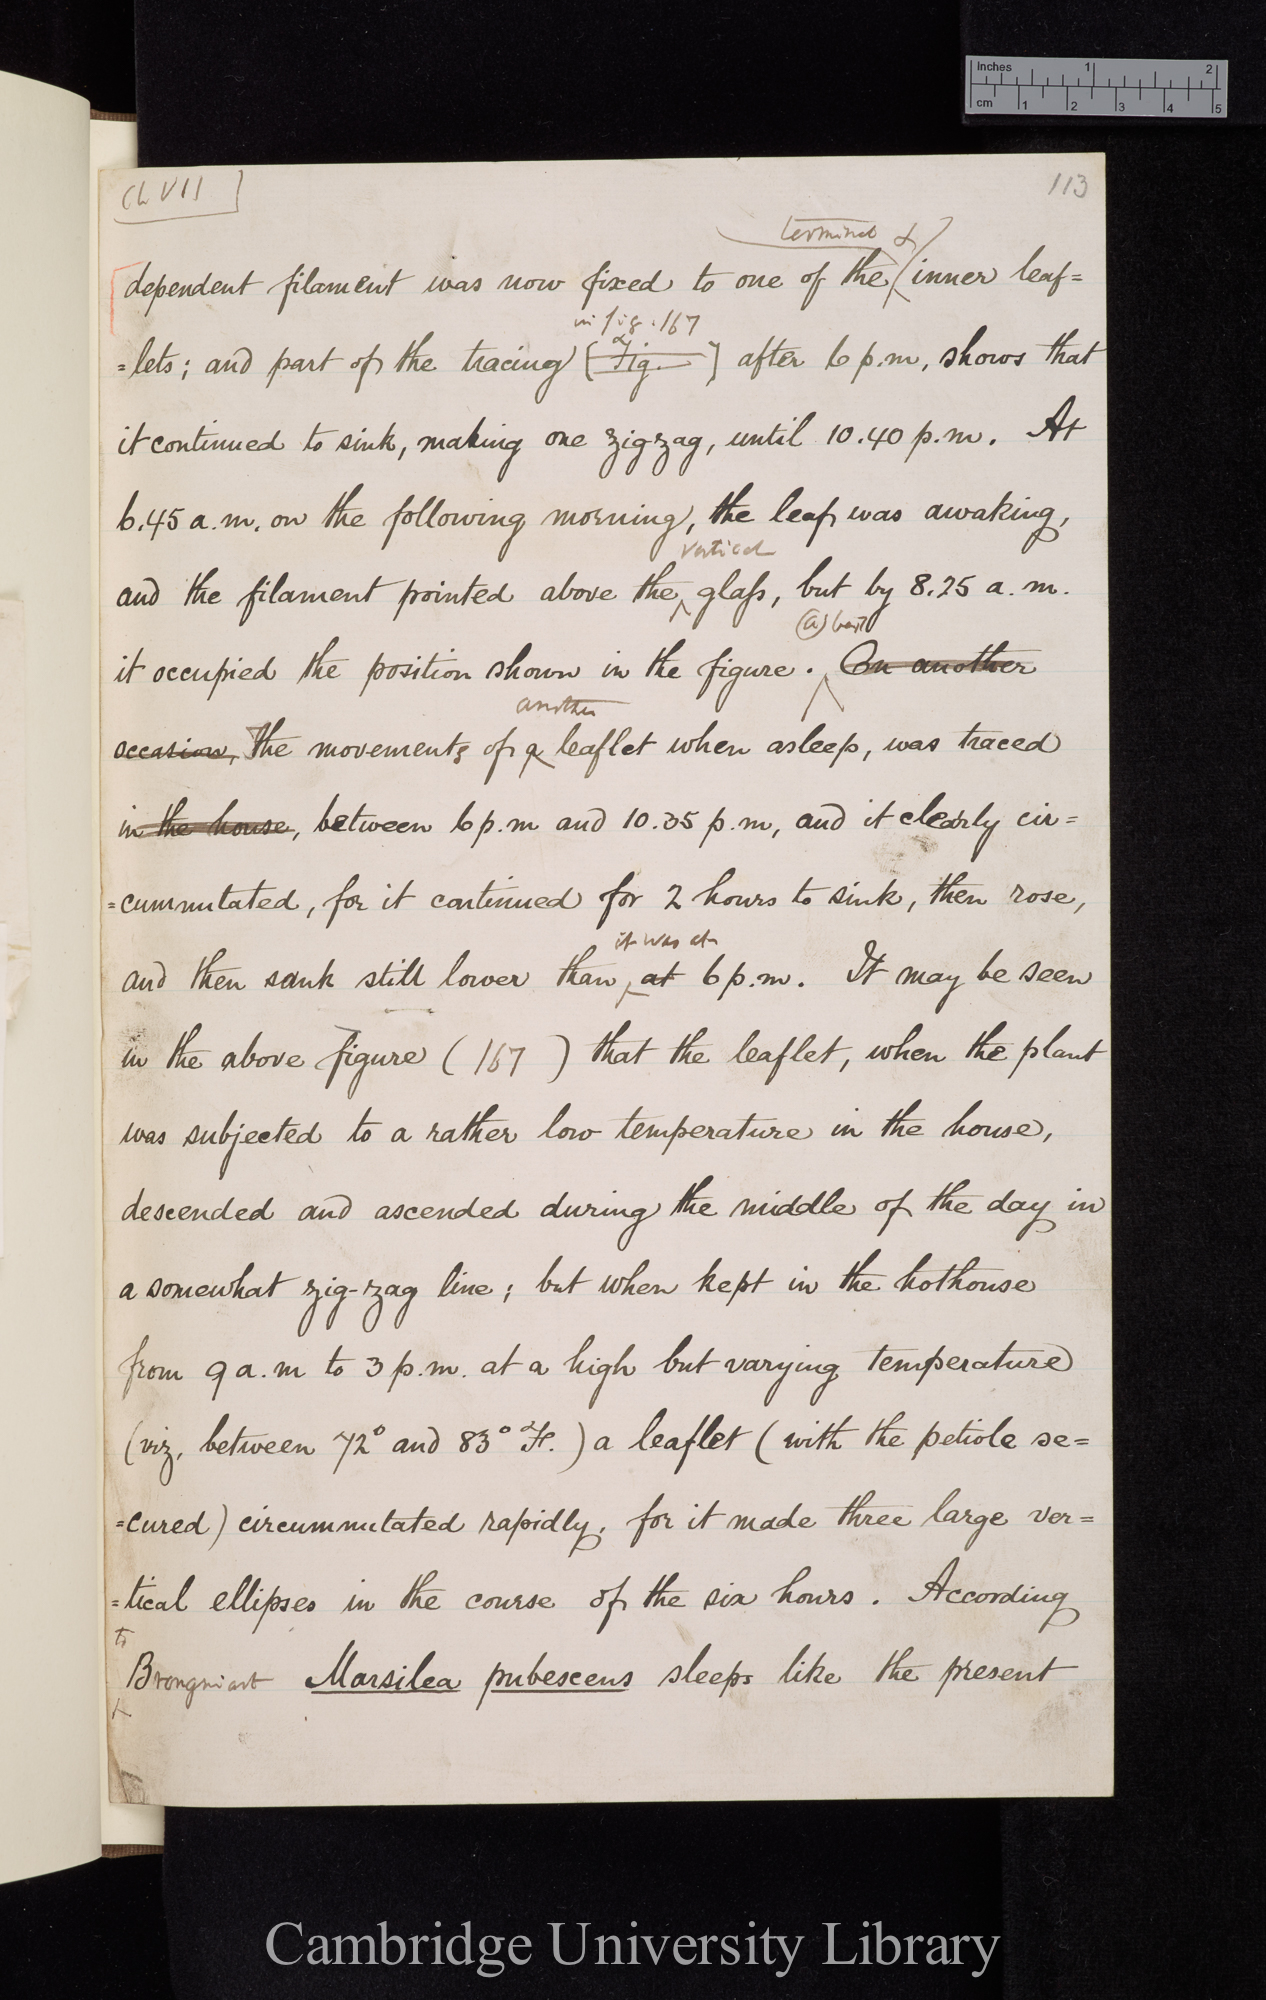 Ch VII]
113
terminal &
dependent filament was now fixed to one of the inner leaf=
in fig. 167
=lets; and part of the tracing [Fig. ] after 6 p.m, shows that
it continued to sink, making one zigzag, until 10.40 p.m. At
6.45 a.m. on the following morning, the leaf was awaking,
vertical
and the filament pointed above the glass, but by 8.25 a.m.
it occupied the position shown in the figure. On another
another
occasion, The movements of a leaflet when asleep, was traced
in the house, between 6 p.m and 10.35 p.m, and it clearly cir=
=cumnutated, for it continued for 2 hours to sink, then rose,
it was at
and then sank still lower than at 6 p.m. It may be seen
in the above figure (167) that the leaflet, when the plant
was subjected to a rather low temperature in the house,
descended and ascended during the middle of the day in
a somewhat zig-zag line; but when kept in the hothouse
from 9 a.m to 3 p.m. at a high but varying temperature
(viz, between 72° and 83° F.) a leaflet (with the petiole se=
=cured) circumnutated rapidly, for it made three large ver=
=tical ellipses in the course of the six hours. According
to
Brongniart Marsilea pubescens sleeps like the present
inches 1 2
cm 1 2 3 4 5
Cambridge University Library